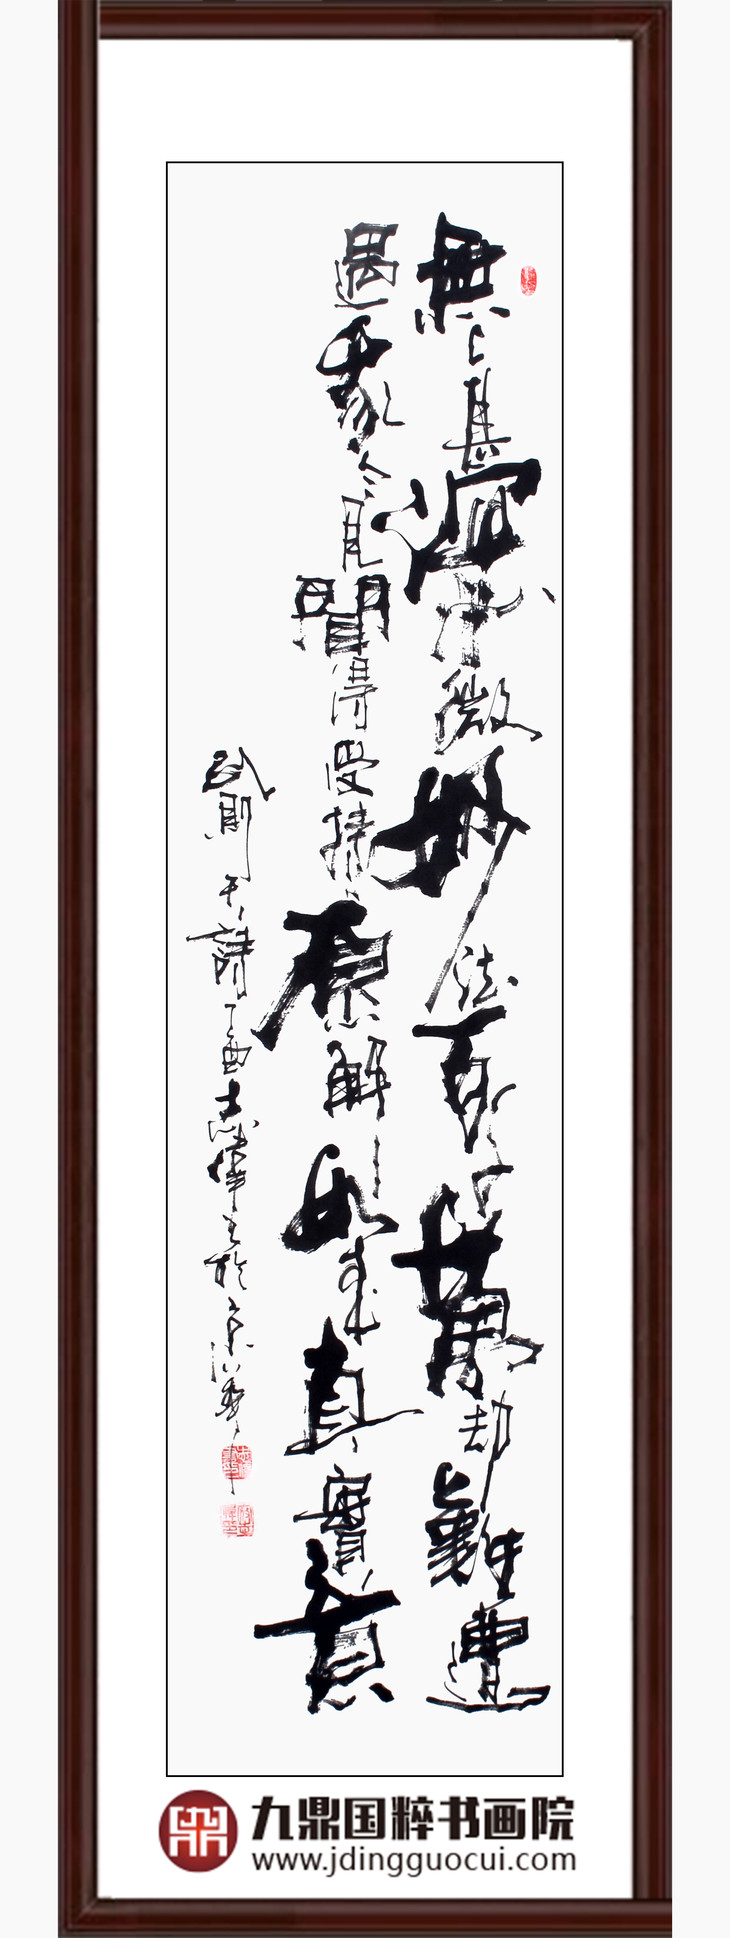 無上甚深微妙法百千萬劫難遭
遇我今見聞得受持願解如來真實義
武則天詩丁酉志偉書於京
九鼎国粹书画院
www.jdingguocui.com